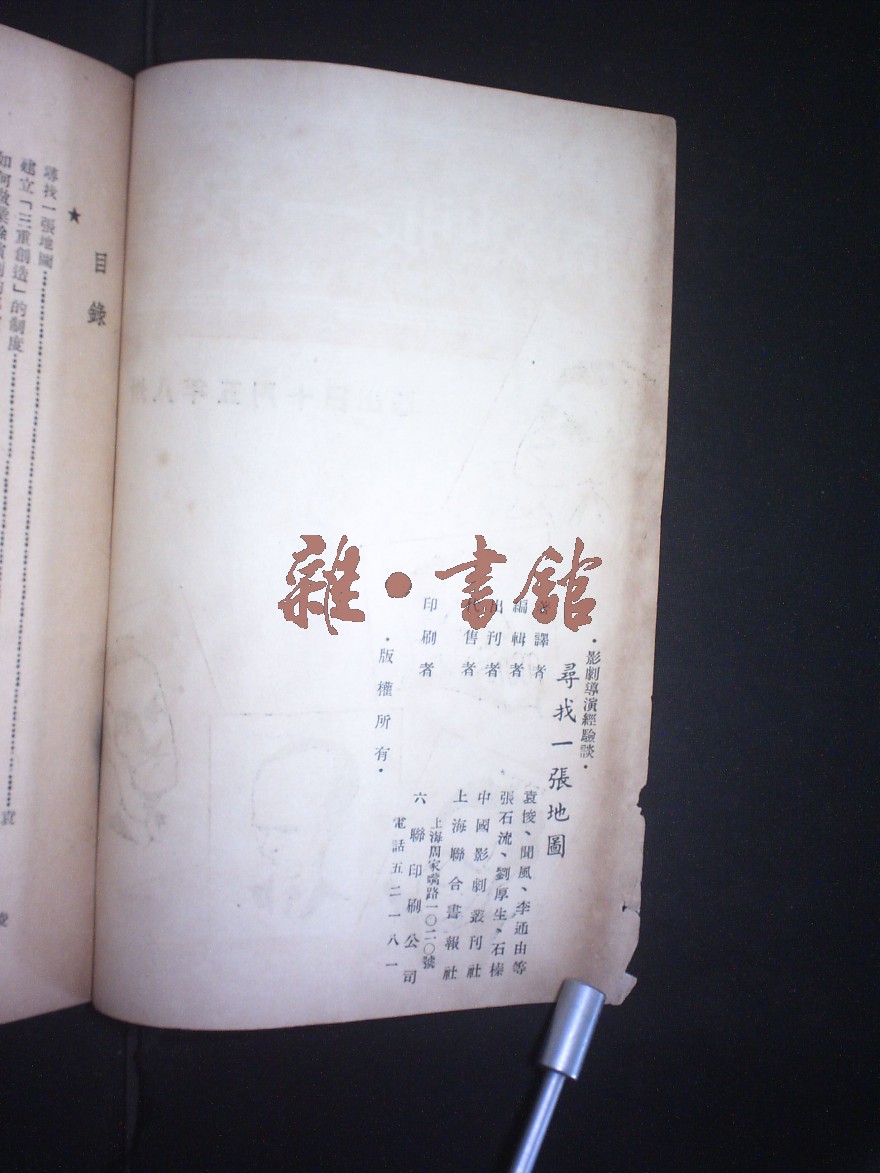 ・影劇導演經驗談・
尋找一張地圖
著譯者 袁悛、聞風、李通由等
編輯者 張石流、劉厚生、石榛
出刊者 中國影劇叢刊社
代售者 上海聯合書報社
上海周家嘴路一〇二〇號
印刷者 六聯印刷公司
電話五二一八一
・版權所有・
雜・書館
目錄
★
尋找一張地圖
建立「三重創造」的制度
袁